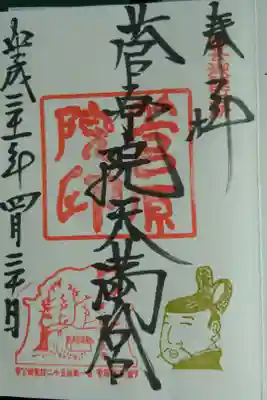 奉拝
菅原院天満宮
平成三十一年四月三十日
菅原
院印